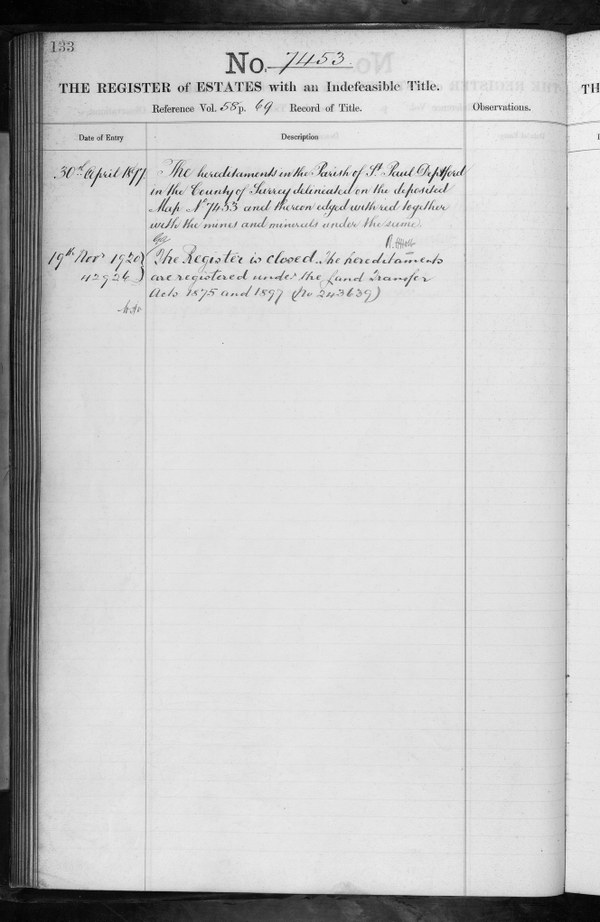 133
No. 7453.
THE REGISTER of ESTATES with an Indefeasible Title.
Reference Vol. 58 p. 69 Record of Title.
Observations.
Date of Entry
Description
30th April 1897
The hereditaments in the Parish of St Paul Deptford
in the County of Surrey delineated on the deposited
Map No 7453 and thereon edged with red together
with the mines and minerals under the same
19th Novr 1920
The Register is closed. The hereditaments
42926
are registered under the Land Transfer
Acts 1875 and 1897 (No 243639)